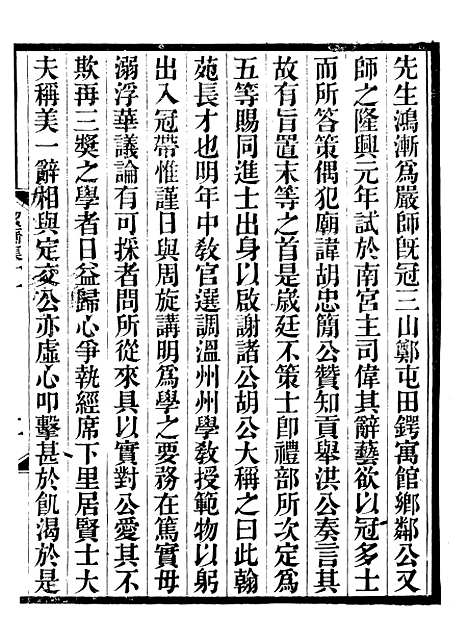 先生鴻漸爲嚴師旣冠三山鄭屯田鍔寓館鄕鄰公又
師之隆興元年試於南宮主司偉其辭藝欲以冠多士
而所答策偶犯廟諱胡忠簡公贊知貢舉洪公奏言其
故有旨置末等之首是歲廷不策士卽禮部所次定爲
五等賜同進士出身以啟謝諸公胡公大稱之曰此翰
苑長才也明年中敎官選調溫州州學敎授範物以躬
出入冠帶惟謹日與周旋講明爲學之要務在篤實毋
溺浮華議論有可採者問所從來具以實對公愛其不
欺再三獎之學者日益歸心爭執經席下里居賢士大
夫稱美一辭相與定交公亦虛心叩擊甚於飢渴於是